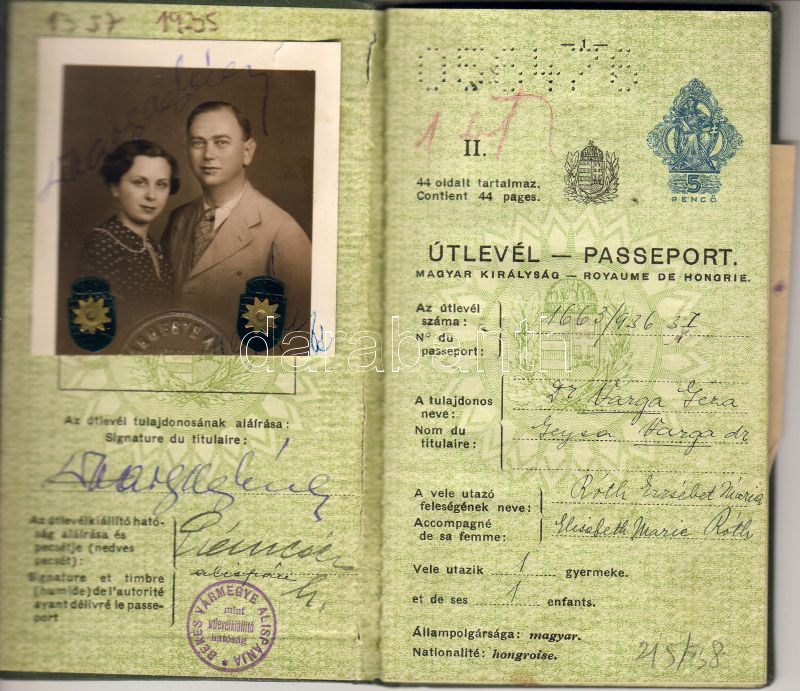 1357 1935
Az útlevél tulajdonosának aláírása:
Signature du titulaire:
Az útlevélkiállító ható-
ság aláírása és
pecsétje (nedves
pecsét):
Signature et timbre
(humide) de l'autorité
ayant délivré le passe-
port
alispán
BÉKÉS VÁRMEGYE ALISPÁNJA
mint
útlevélkiállító
hatóság
— 1 —
056475
II.
44 oldalt tartalmaz.
Contient 44 pages.
5
PENGŐ
ÚTLEVÉL — PASSEPORT.
MAGYAR KIRÁLYSÁG — ROYAUME DE HONGRIE.
Az útlevél
száma:
No du
passeport:
1663/936
A tulajdonos
neve:
Dr Varga Géza
Nom du
titulaire:
Geysa Varga dr
A vele utazó
feleségének neve:
Róth Erzsébet Mária
Accompagné
de sa femme:
Elisabeth Marie Róth
Vele utazik 1 gyermeke.
et de ses 1 enfants.
Állampolgársága: magyar.
Nationalité: hongroise.
darabanth